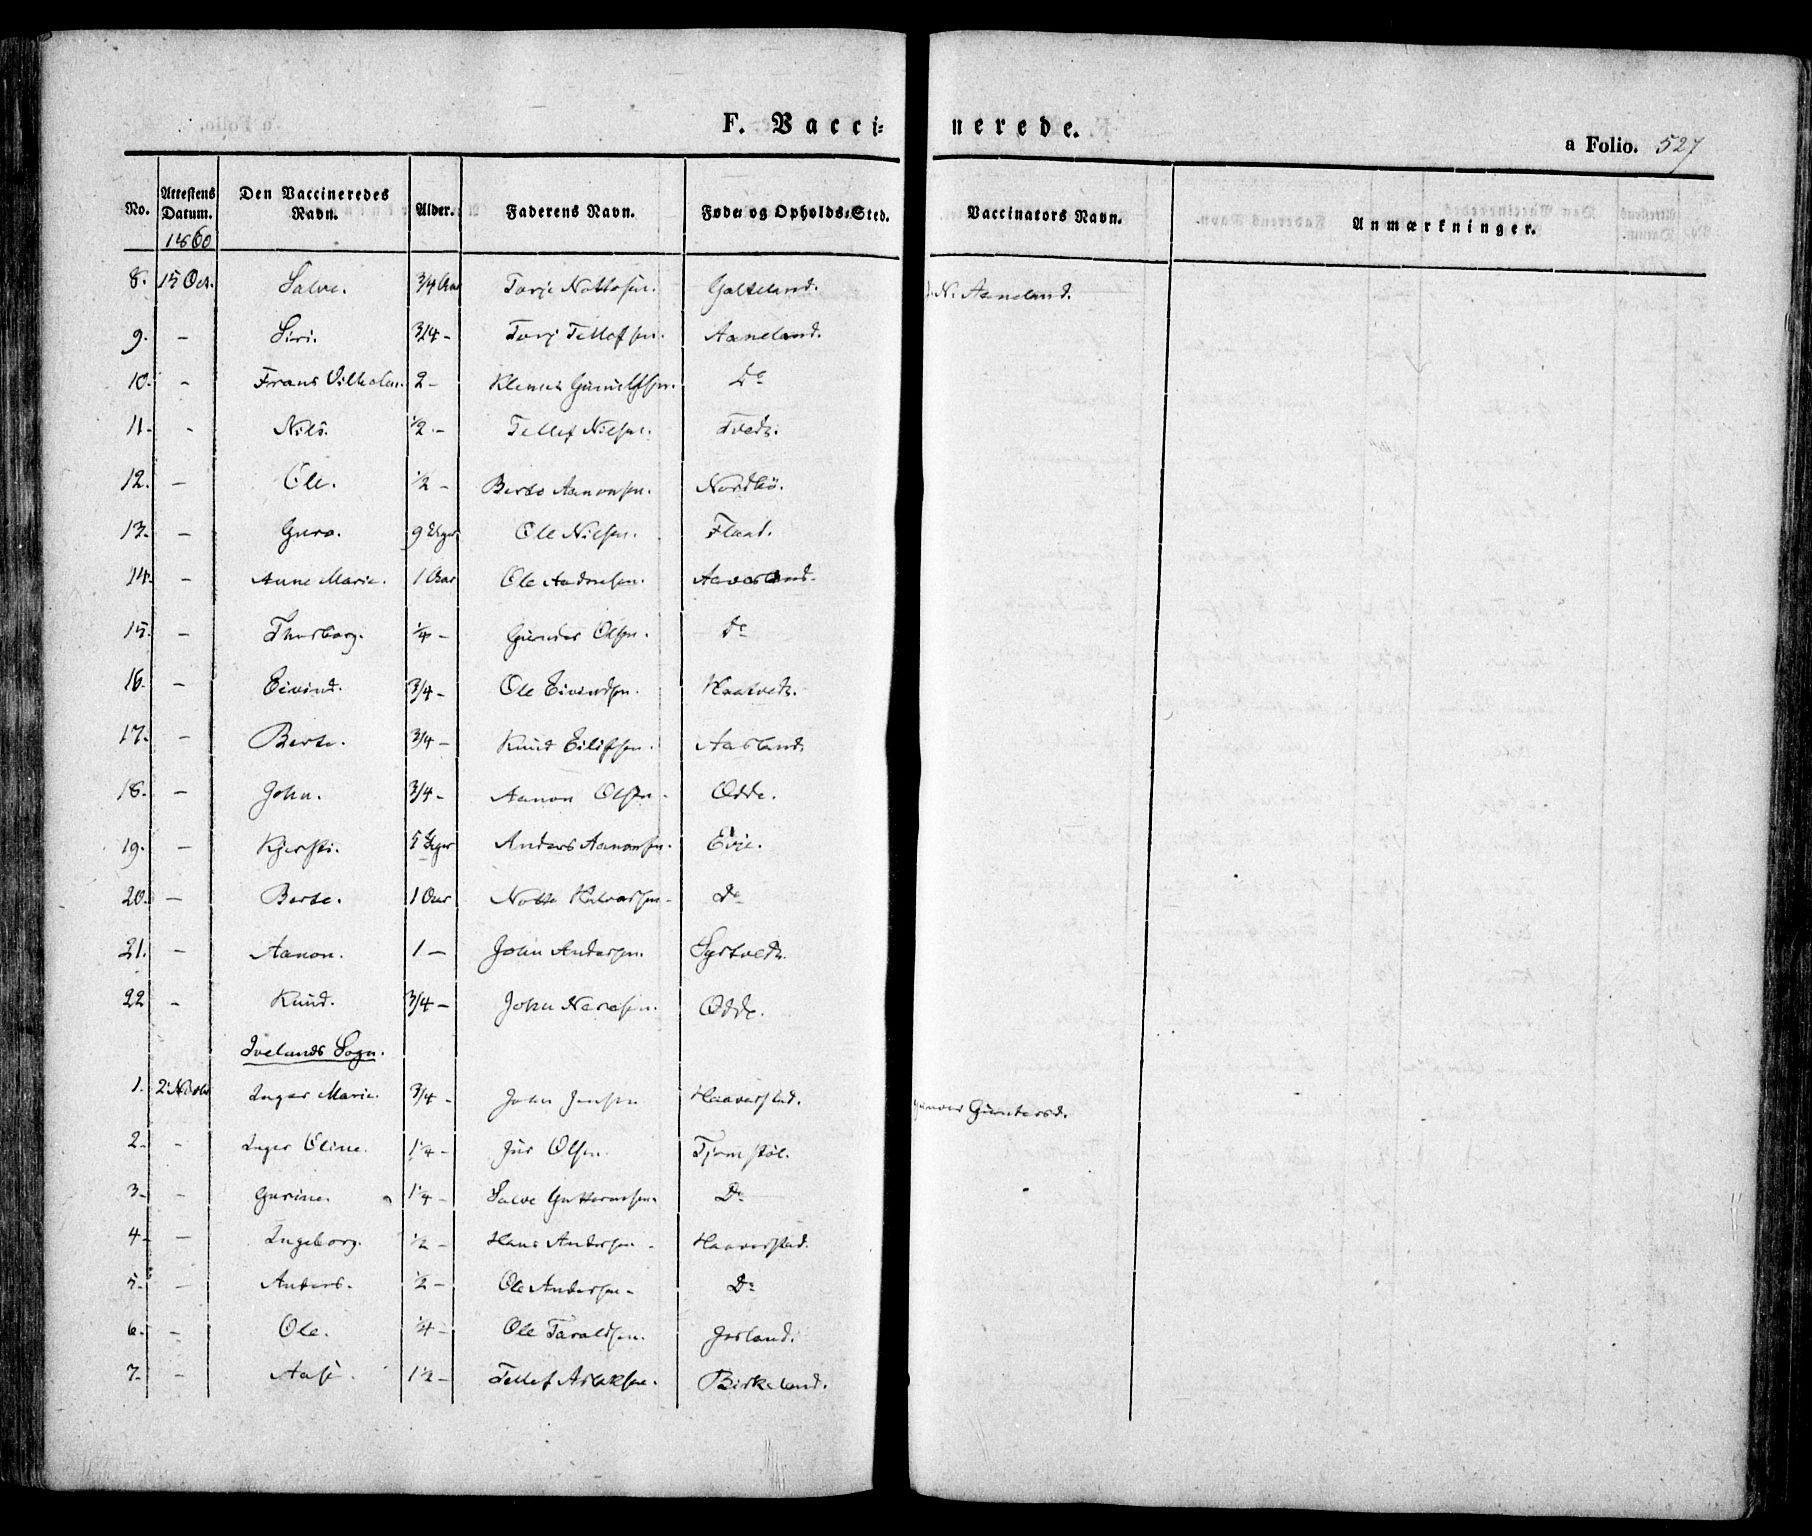 F. Vacci=nerede.
a Folio. 527
No. Attestens Datum. Den Vaccineredes Navn. Alder. Faderens Navn. Føde= og Opholds=Sted. Vaccinators Navn. Anmærkninger.
1860
8. 15 Oct. Salve. 3/4 Aar Torje Nottosen. Galteland. N. Aaneland.
9. - Siri. 3/4 - Torj Tellefsen. Aaneland.
10. - Frans Vilhelm. 2 - Klemet Gunulfsen. Do
11. - Nils. 1/2 - Tellef Nilsen. Tvedt.
12. - Ole. 1/2 - Berto Aanonsen. Nordbö.
13. - Guro. 9 Uger Ole Nilsen. Flaat.
14. - Anne Marie. 1 Aar Ole Andresen.
15. - Thorborg. 1/4 - Gunder Olsen. Do
16. - Eivind. 3/4 - Ole Eivindsen. Haatvedt.
17. - Berte. 3/4 - Knud Eilifsen. Aasland.
18. - John. 3/4 - Aanon Olsen - Odde.
19. - Kjersti. 5 Uger Anders Aanonsen. Evje.
20. - Berte. 1 Aar Notto Halvorsen - Do
21. - Aanon. 1 - John Andersen. Syrtvedt.
22 - Knud. 3/4 - John Neresen. Odde.
Ivelands Sogn.
1. 2 Inger Marie. 3/4 - John Jensen Haaverstad. Gunderd.
2. - Inger Oline. 1 1/4 - Jür Olsen. Tjomstöl.
3. - Gurine. 1 1/4 - Salve Guttormsen. Do
4. - Ingeborg. 1/2 - Hans Andersen - Haaverstad.
5. - Anders. 1/2 - Ole Andersen - Do
6. - Ole. 1/4 - Ole Taraldsen. Jorland.
7. - Aase. 1 1/2 - Tellef Aslaksen. Birkeland.